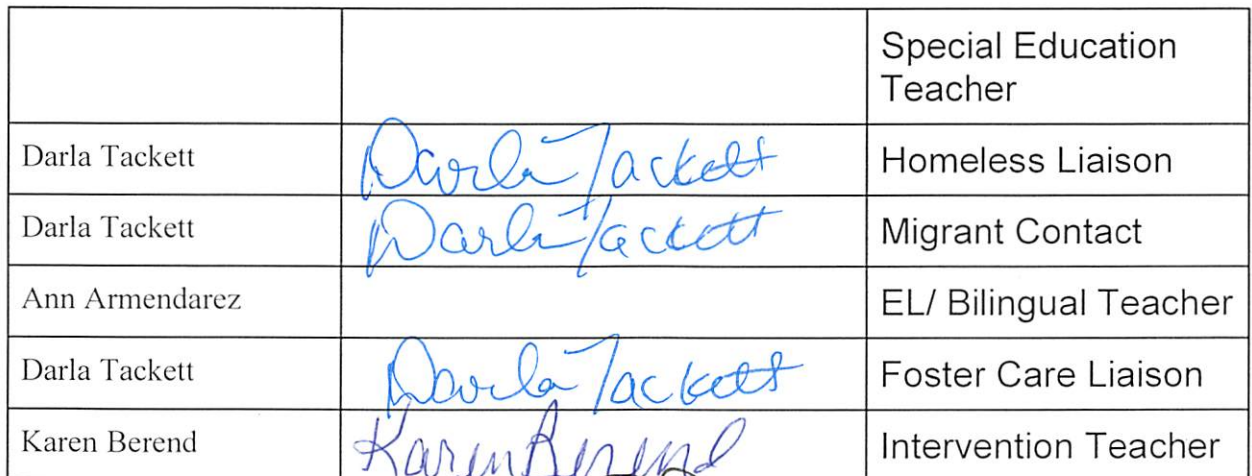 Special Education
Teacher
Darla Tackett Darla Tackett Homeless Liaison
Darla Tackett Darla Tackett Migrant Contact
Ann Armendarez EL/ Bilingual Teacher
Darla Tackett Darla Tackett Foster Care Liaison
Karen Berend Karen Berend Intervention Teacher